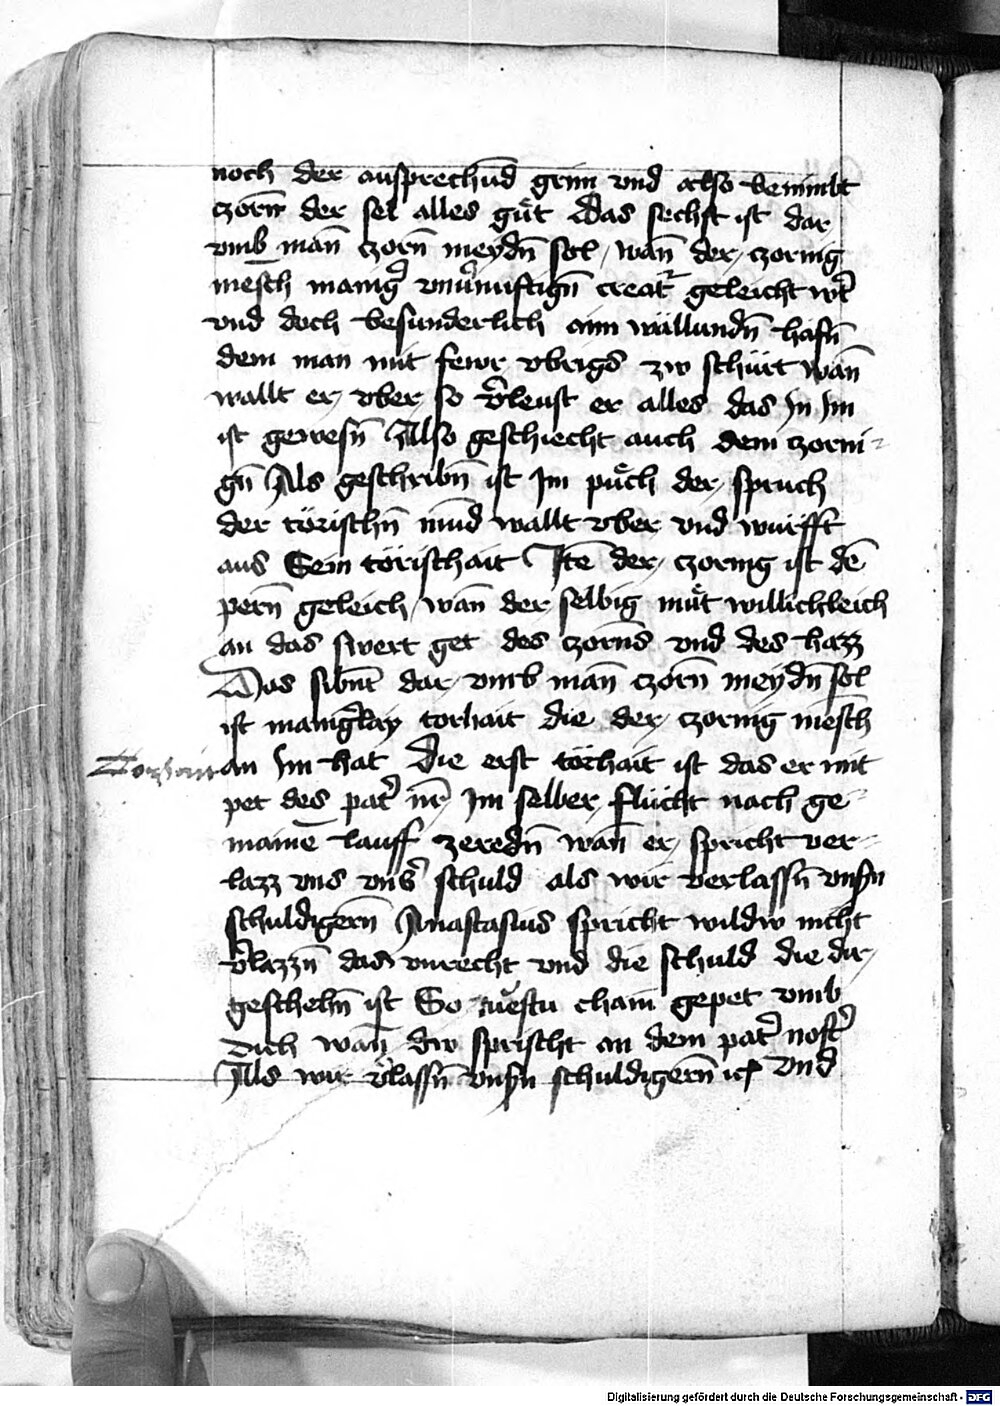 noch der ausprechūd grim vnd also benimbt
czorn der sel alles gůt Das sechst ist dar
vmb man̄ czorn̄ meydn̄ sol / wan̄ der czornig
mēsch manigˀ vnuˀnuftign̄ creatˀ geleicht wˀt
vnd doch besunderlich aim wallundn̄ hafn̄
dem man mit fewr vbrigs zw schürt wan̄
wallt er vber so vˀleust er alles das In Im
ist gewesn̄ Also geschiecht auch dem zorni-
gn̄ Als geschribn̄ ist Im půch der spruch
der törischn̄ mūd wallt vber vnd würfft
aus Sein törischait Itē der czornig ist dē
pern̄ geleich wan̄ der selbig můt willichleich
an das swert get des czorns vnd des hazz
Das sibnt dar vmb man̄ czorn̄ meydn̄ sol
ist manigˀlay torhait die der czornig mēsch
Torhait an Im hat Die erst törhait ist das er mit
pet des patˀ nrˀ Im selber flücht nach ge-
maine lauff zeredn̄ wan̄ er spricht ver-
lazz vns vnsˀ schuld als wir verlassn̄ vnsn
schuldigern̄ Anastasius spricht wildw nicht
vˀlazzn̄ das vnrecht vnd die schuld die dir
geschehn̄ ist So tuestu chain gepet vmb
Dich wan̄ dw sprischt an dem patˀ nostˀ
Als wir vˀlassn̄ vnsn schuldigern̄ ich vnd
Digitalisierung gefördert durch die Deutsche Forschungsgemeinschaft - DFG